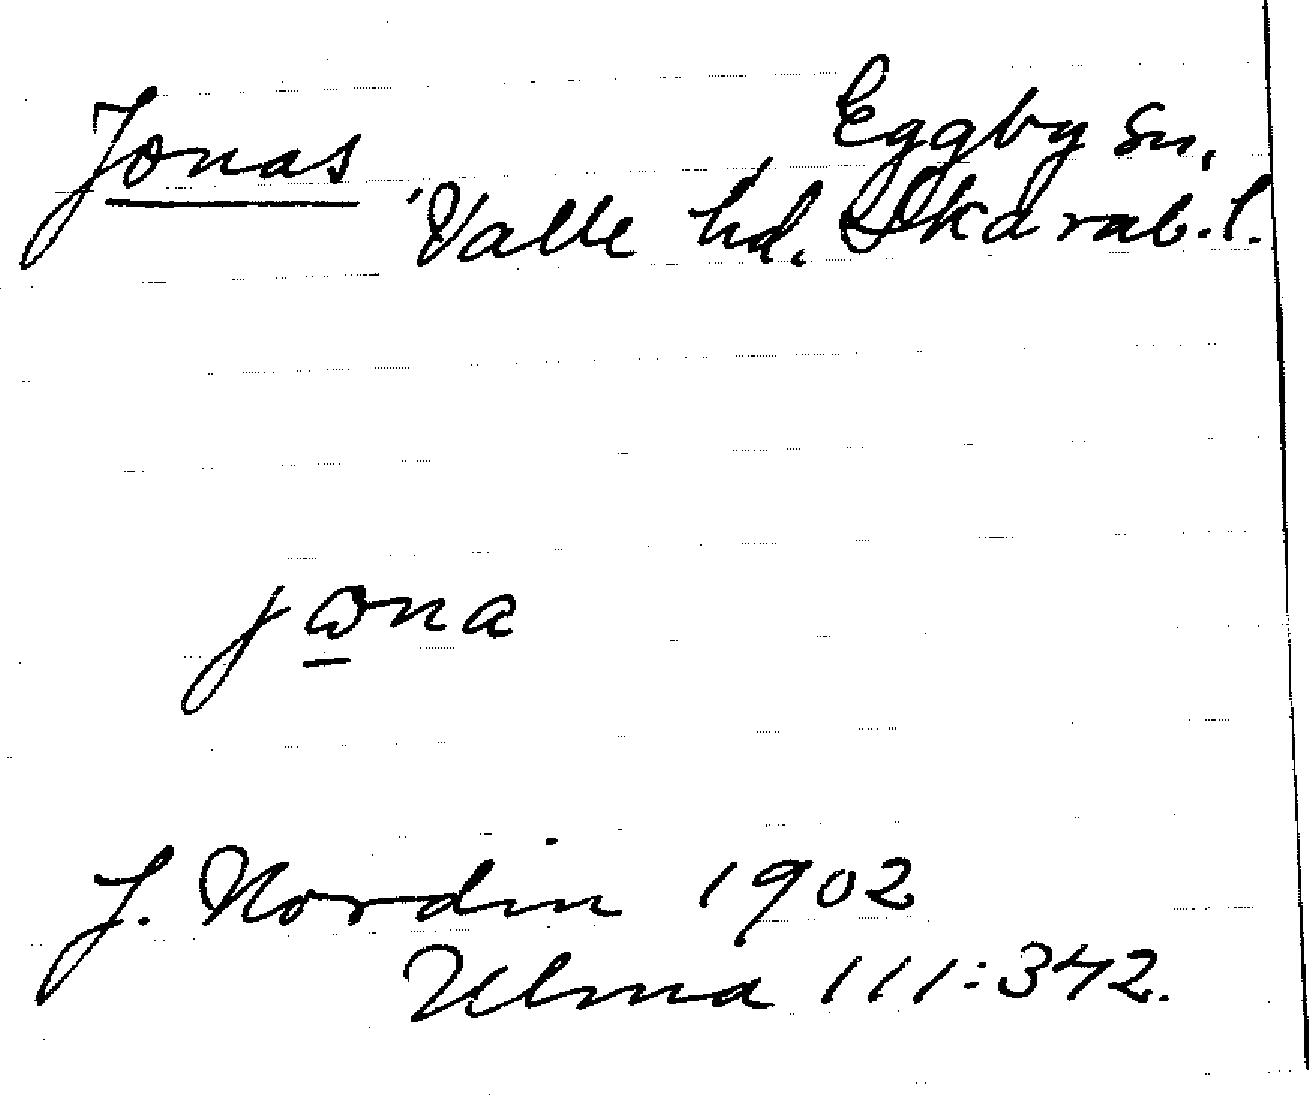 Jonas
Eggby sn,
Valle hd. Skarab.l.
J. Nordin 1902
Ulma 111:342.